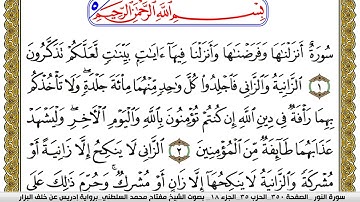 بِسْمِ اللَّهِ الرَّحْمَٰنِ الرَّحِيمِ
سُورَةٌ أَنزَلْنَٰهَا وَفَرَضْنَٰهَا وَأَنزَلْنَا فِيهَا ءَايَٰتٍۭ بَيِّنَٰتٍ لَّعَلَّكُمْ تَذَكَّرُونَ
١ الزَّانِيَةُ وَالزَّانِي فَاجْلِدُوا كُلَّ وَٰحِدٍ مِّنْهُمَا مِائَةَ جَلْدَةٍ وَلَا تَأْخُذْكُم
بِهِمَا رَأْفَةٌ فِي دِينِ اللَّهِ إِن كُنتُمْ تُؤْمِنُونَ بِاللَّهِ وَالْيَوْمِ الْأَخِرِ وَلْيَشْهَدْ
عَذَابَهُمَا طَائِفَةٌ مِّنَ الْمُؤْمِنِينَ ٢ الزَّانِي لَا يَنكِحُ إِلَّا زَانِيَةً أَوْ
مُشْرِكَةً وَالزَّانِيَةُ لَا يَنكِحُهَا إِلَّا زَانٍ أَوْ مُشْرِكٌ وَحُرِّمَ ذَٰلِكَ عَلَى
سورة النور . الصفحة ٣٥٠ . الحزب ٣٥ . الجزء ١٨ . بصوت الشيخ مفتاح محمد السلطني . برواية إدريس عن خلف البزار